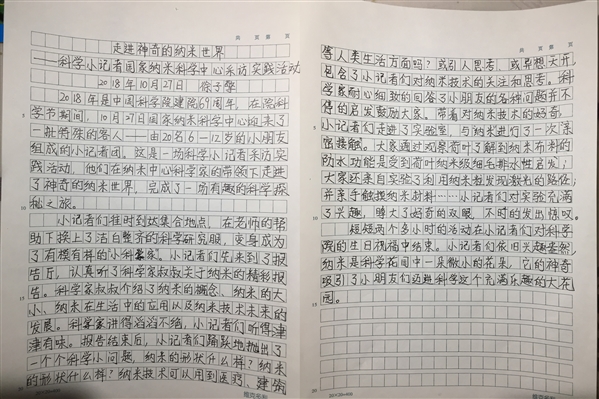 共 页 第 页
走进神奇的纳米世界
——科学小记者国家纳米科学中心采访实践活动
2018年10月27日 徐子擎
2018年是中国科学院建院69周年，在院科
学节期间，10月27日国家纳米科学中心迎来了
一批特殊的客人——由20名6—12岁的小朋友
组成的小记者团。这是一场科学小记者采访实
践活动，他们在纳米中心科学家的带领下走进
了神奇的纳米世界，完成了一场有趣的科学探
秘之旅。
小记者们准时到达集合地点，在老师的帮
助下换上了洁白整齐的科学研究服，变身成为
了有模有样的小科学家。小记者们先来到了报
告厅，认真听了科学家叔叔关于纳米的精彩报
告。科学家叔叔介绍了纳米的概念、纳米的大
小、纳米在生活中的应用以及纳米技术未来的
发展。科学家讲得滔滔不绝，小记者们听得津
津有味。报告结束后，小记者们踊跃地抛出了
一个个科学小问题，纳米的形状什么样？纳米
的形状什么样？纳米技术可以用到医疗、建筑
共 页 第 页
等人类生活方面吗？或引人思考，或异想天开，
包含了小记者们对纳米技术的关注和思考。科
学家耐心细致的回答了小朋友的各种问题并不
得的启发鼓励大家。带着对纳米技术的好奇，
小记者们走进了实验室，与纳米进行了一次亲
密接触。大家通过观察荷叶了解到纳米布料的
防水功能是受到荷叶纳米级细毛排水性启发；
大家还亲自实验了利用纳米粒发现激光的路径；
并亲手触摸纳米材料……小记者们对实验充满
了兴趣，睁大了好奇的双眼，不时的发出惊叹。
短短两个多小时的活动在小记者们对科学
院的生日祝福中结束。小记者们依旧兴趣盎然，
纳米是科学花园中一朵微小的花朵，它的神奇
吸引了小朋友们迈进科学这个充满乐趣的大花
园。